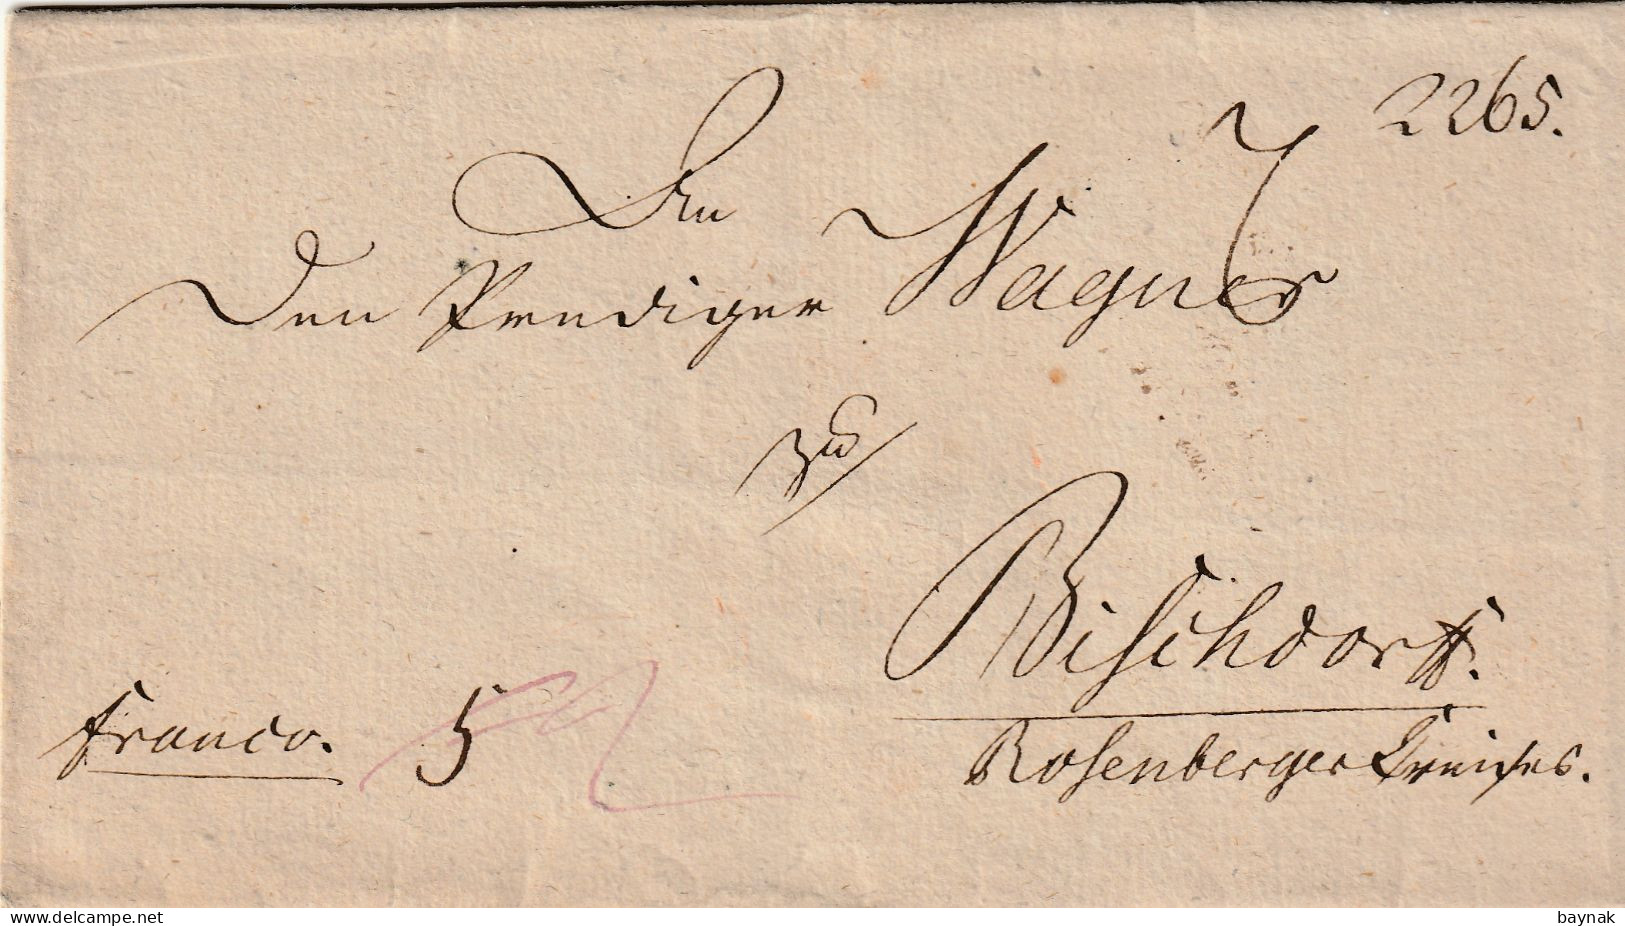 2265.
An
Den Prediger Wagner
zu
Bischdorff.
franco. 5
Rosenberger Creises.
www.delcampe.net
baynak